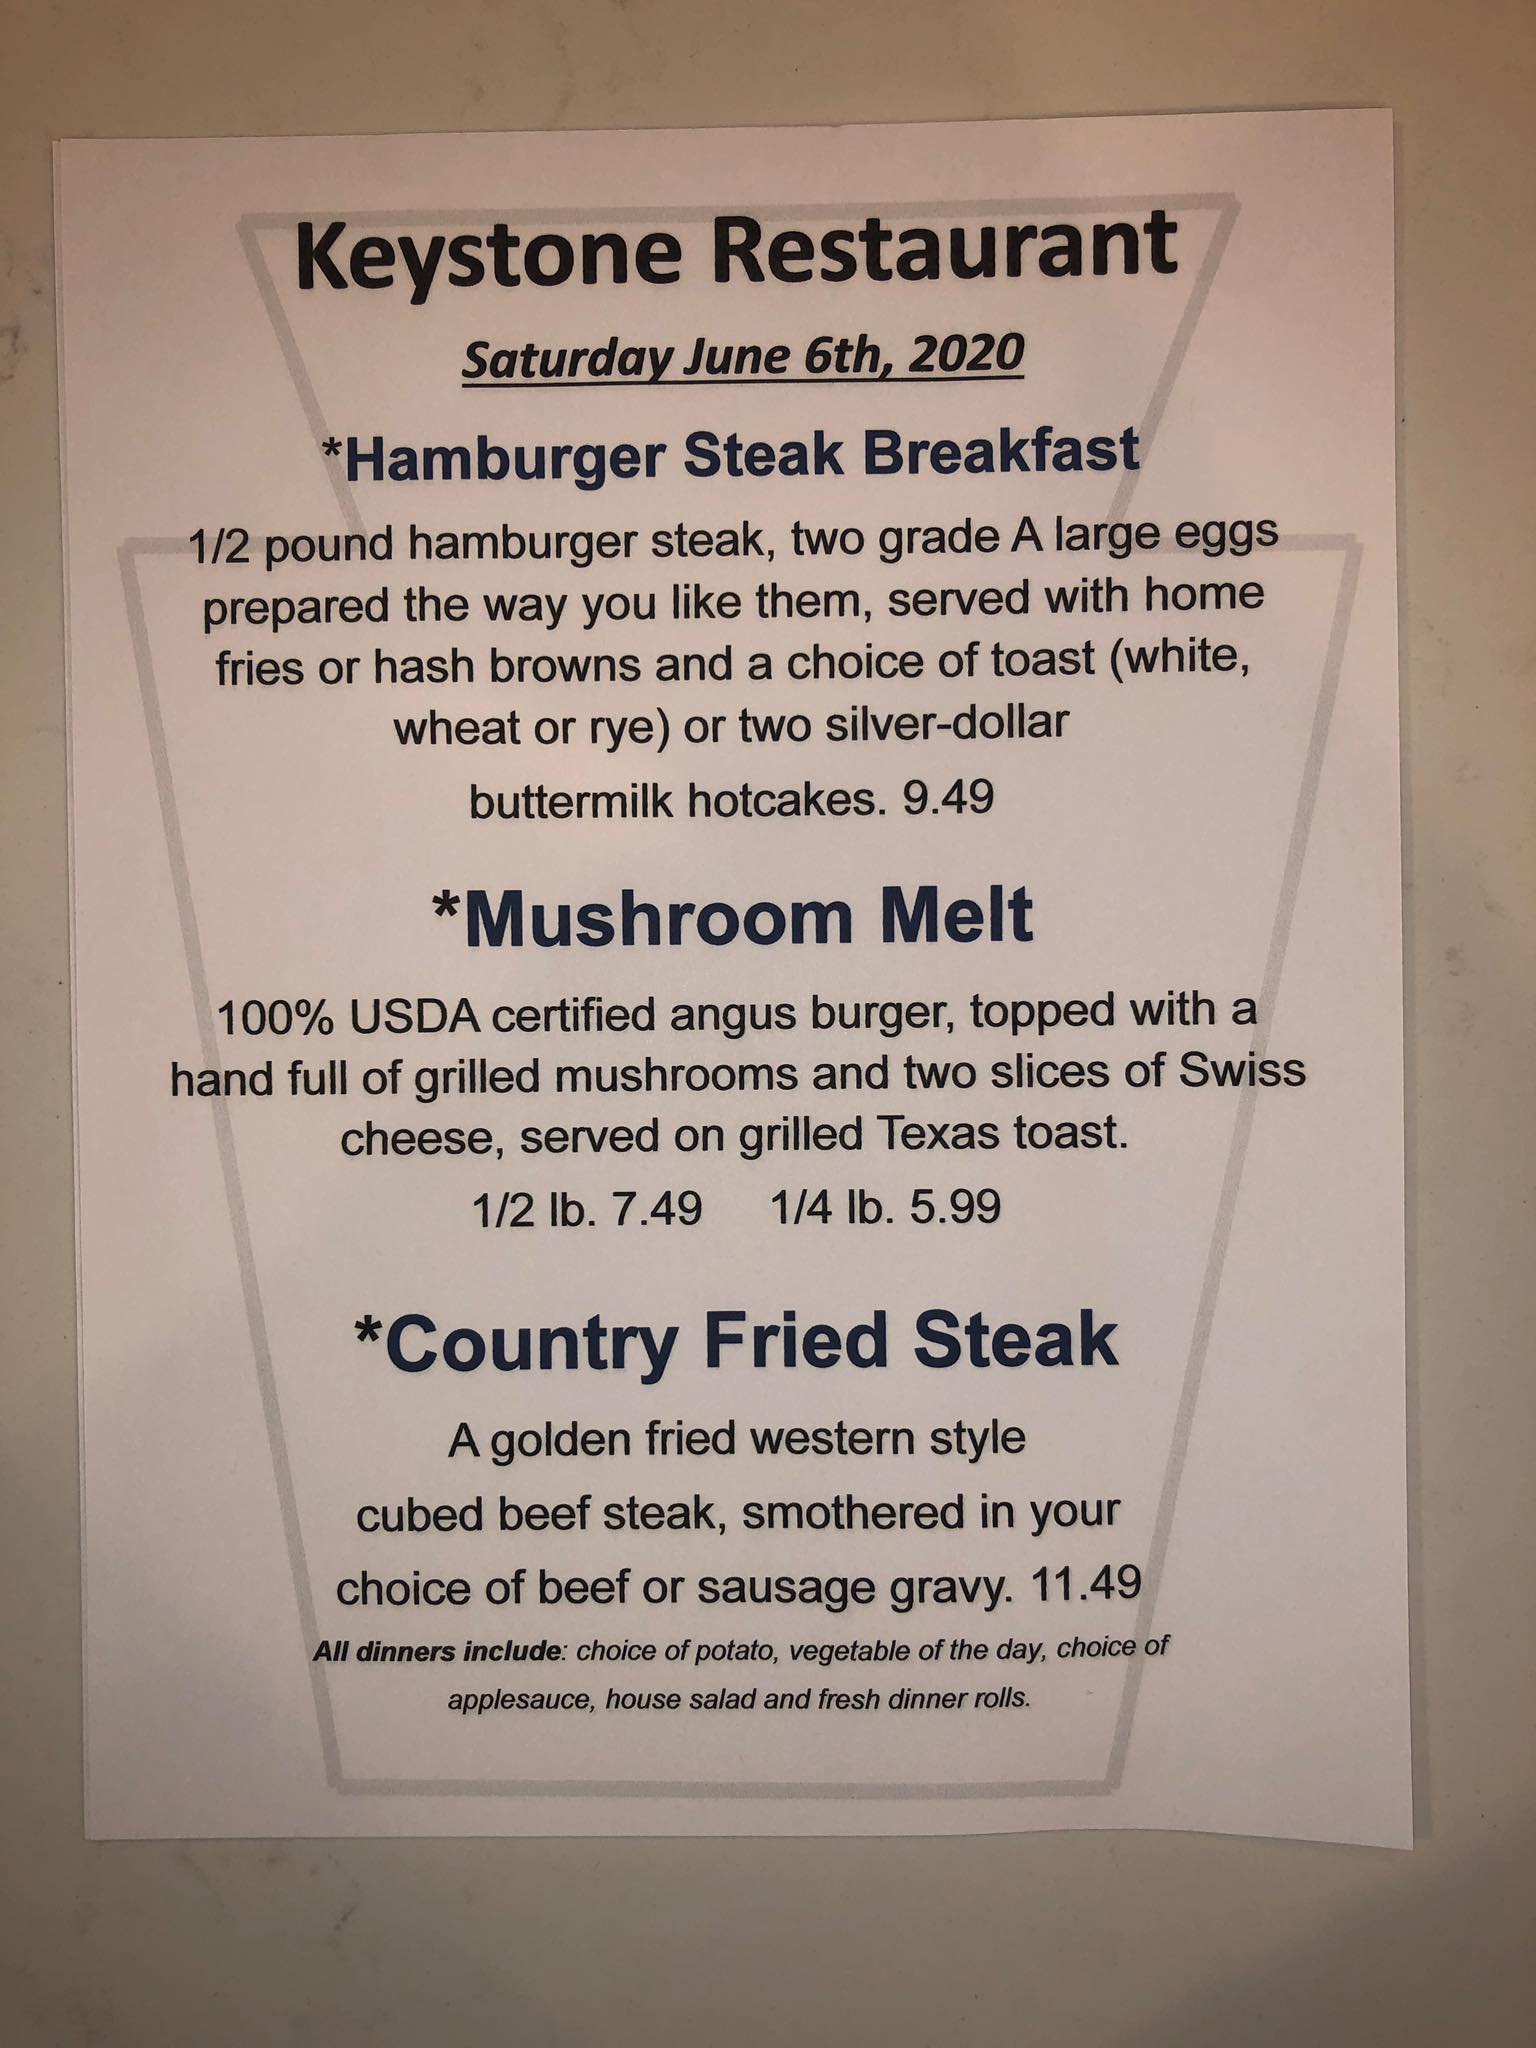 Keystone Restaurant
Saturday June 6th, 2020
*Hamburger Steak Breakfast
1/2 pound hamburger steak, two grade A large eggs
prepared the way you like them, served with home
fries or hash browns and a choice of toast (white,
wheat or rye) or two silver-dollar
buttermilk hotcakes. 9.49
*Mushroom Melt
100% USDA certified angus burger, topped with a
hand full of grilled mushrooms and two slices of Swiss
cheese, served on grilled Texas toast.
1/2 lb. 7.49 1/4 lb. 5.99
*Country Fried Steak
A golden fried western style
cubed beef steak, smothered in your
choice of beef or sausage gravy. 11.49
All dinners include: choice of potato, vegetable of the day, choice of
applesauce, house salad and fresh dinner rolls.